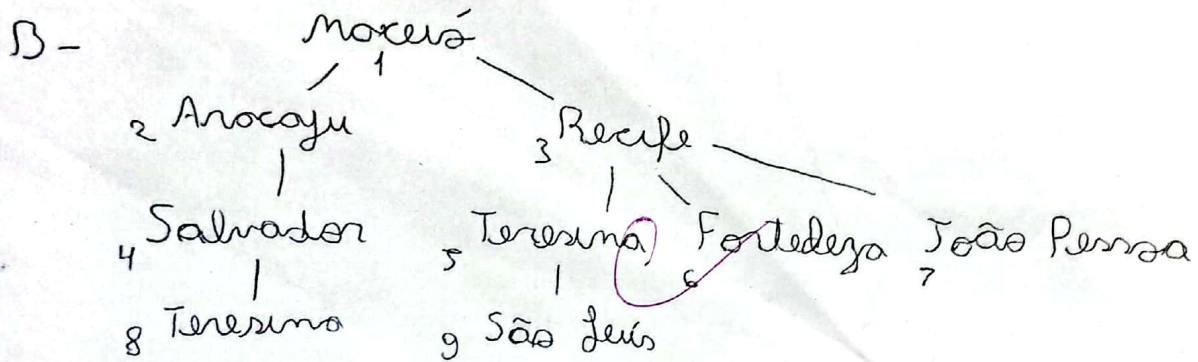 B - Maceió
1
2 Aracaju 3 Recife
4 Salvador 5 Teresina 6 Fortedeza 7 João Pessoa
8 Teresina 9 São Luís